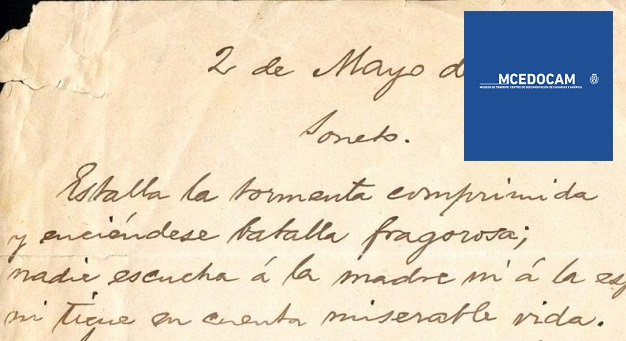 2 de Mayo d
MCEDOCAM
MUSEOS DE TENERIFE CENTRO DE DOCUMENTACIÓN DE CANARIAS Y AMÉRICA
Soneto.
Estalla la tormenta comprimida
y enciéndese batalla fragorosa;
nadie escucha á la madre ni á la esp
ni tiene en cuenta miserable vida.